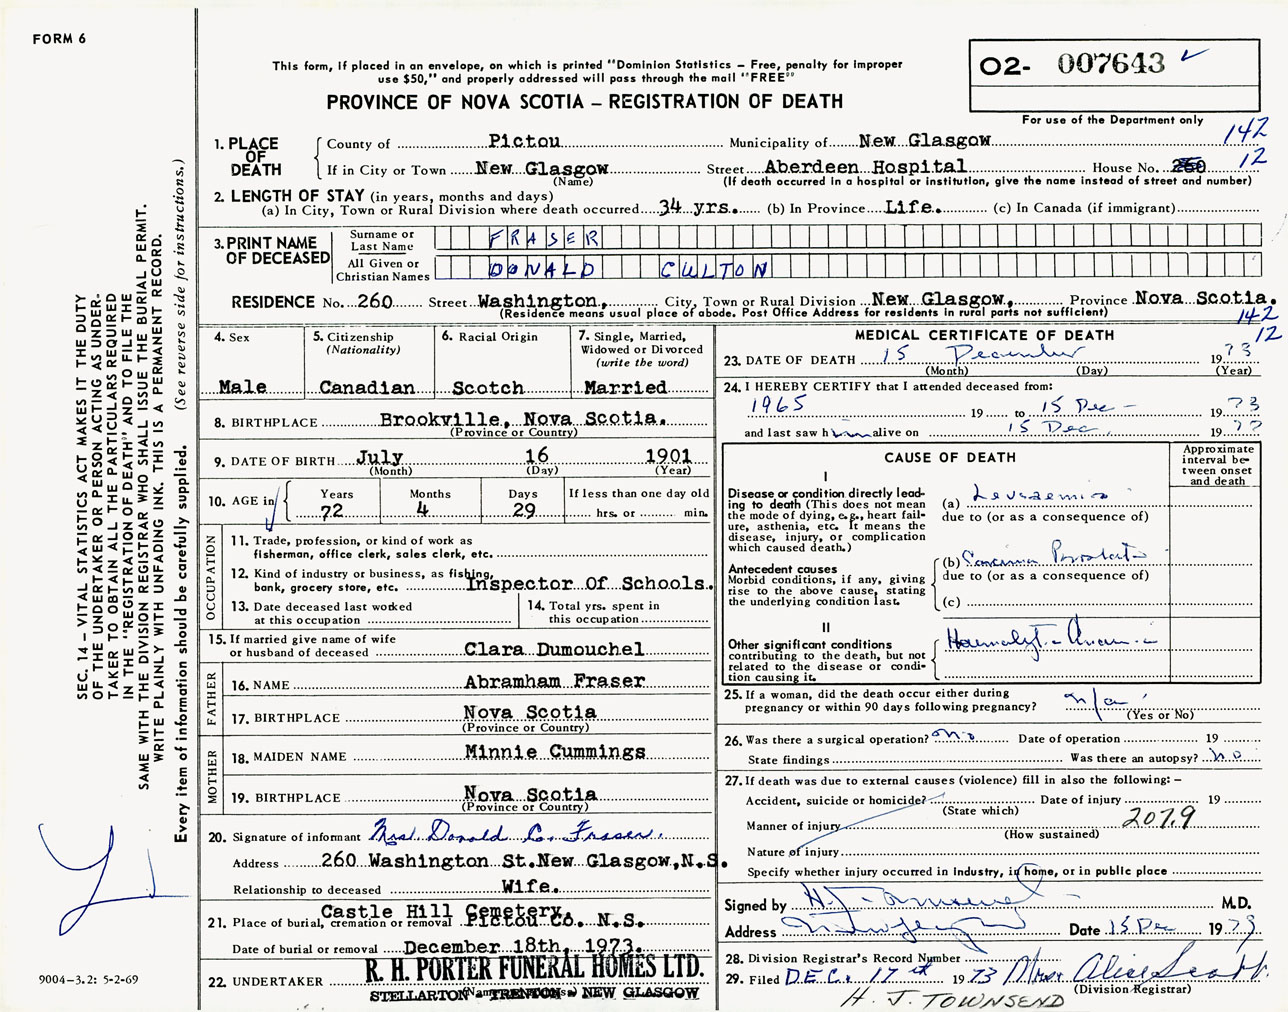 FORM 6
This form, if placed in an envelope, on which is printed "Dominion Statistics – Free, penalty for improper
use $50," and properly addressed will pass through the mail "FREE"
PROVINCE OF NOVA SCOTIA – REGISTRATION OF DEATH
O2- 007643
For use of the Department only
142
12
1. PLACE OF DEATH
County of Pictou Municipality of New Glasgow
If in City or Town New Glasgow Street Aberdeen Hospital House No. 260
(Name) (If death occurred in a hospital or institution, give the name instead of street and number)
2. LENGTH OF STAY (in years, months and days)
(a) In City, Town or Rural Division where death occurred 34 yrs. (b) In Province Life. (c) In Canada (if immigrant)
3. PRINT NAME OF DECEASED
Surname or Last Name FRASER
All Given or Christian Names DONALD CULTON
RESIDENCE No. 260 Street Washington, City, Town or Rural Division New Glasgow, Province Nova Scotia.
(Residence means usual place of abode. Post Office Address for residents in rural parts not sufficient)
142
12
4. Sex
Male
5. Citizenship
(Nationality)
Canadian
6. Racial Origin
Scotch
7. Single, Married,
Widowed or Divorced
(write the word)
Married
8. BIRTHPLACE Brookville, Nova Scotia.
(Province or Country)
9. DATE OF BIRTH July 16 1901
(Month) (Day) (Year)
10. AGE in
Years 72
Months 4
Days 29
If less than one day old
hrs. or min.
OCCUPATION
11. Trade, profession, or kind of work as
fisherman, office clerk, sales clerk, etc.
12. Kind of industry or business, as fishing,
bank, grocery store, etc. Inspector Of Schools.
13. Date deceased last worked
at this occupation
14. Total yrs. spent in
this occupation
15. If married give name of wife
or husband of deceased Clara Dumouchel
FATHER
16. NAME Abramham Fraser
17. BIRTHPLACE Nova Scotia
(Province or Country)
MOTHER
18. MAIDEN NAME Minnie Cummings
19. BIRTHPLACE Nova Scotia
(Province or Country)
20. Signature of informant Mrs Donald C. Fraser.
Address 260 Washington St.New Glasgow,N.S.
Relationship to deceased Wife.
21. Place of burial, cremation or removal Castle Hill Cemetery,
Pictou Co. N.S.
Date of burial or removal December 18th, 1973.
22. UNDERTAKER R. H. PORTER FUNERAL HOMES LTD.
STELLARTON - TRENTON - NEW GLASGOW
MEDICAL CERTIFICATE OF DEATH
23. DATE OF DEATH 15 December 1973
(Month) (Day) (Year)
24. I HEREBY CERTIFY that I attended deceased from:
1965 19 to 15 Dec - 1973
and last saw him alive on 15 Dec. 1973
CAUSE OF DEATH
Approximate interval between onset and death
I
Disease or condition directly leading to death (This does not mean the mode of dying, e.g., heart failure, asthenia, etc. It means the disease, injury, or complication which caused death.)
(a) Leukaemia
due to (or as a consequence of)
Antecedent causes
Morbid conditions, if any, giving rise to the above cause, stating the underlying condition last.
(b) Carcinoma Prostate
due to (or as a consequence of)
(c)
II
Other significant conditions
contributing to the death, but not related to the disease or condition causing it.
Haemolytic Anaemia
25. If a woman, did the death occur either during
pregnancy or within 90 days following pregnancy? n/a
(Yes or No)
26. Was there a surgical operation? No Date of operation 19
State findings Was there an autopsy? No
27. If death was due to external causes (violence) fill in also the following: –
Accident, suicide or homicide? Date of injury 19
(State which)
Manner of injury 2079
(How sustained)
Nature of injury
Specify whether injury occurred in Industry, in home, or in public place
Signed by H J Townsend M.D.
Address New Glasgow Date 15 Dec 1973
28. Division Registrar's Record Number
29. Filed DEC. 17th 1973 Mrs. Alice Scott
(Division Registrar)
H. J. TOWNSEND
SEC. 14 – VITAL STATISTICS ACT MAKES IT THE DUTY
OF THE UNDERTAKER OR PERSON ACTING AS UNDER-
TAKER TO OBTAIN ALL THE PARTICULARS REQUIRED
IN THE "REGISTRATION OF DEATH" AND TO FILE THE
SAME WITH THE DIVISION REGISTRAR WHO SHALL ISSUE THE BURIAL PERMIT.
WRITE PLAINLY WITH UNFADING INK. THIS IS A PERMANENT RECORD.
Every item of information should be carefully supplied. (See reverse side for instructions.)
9004–3.2: 5-2-69